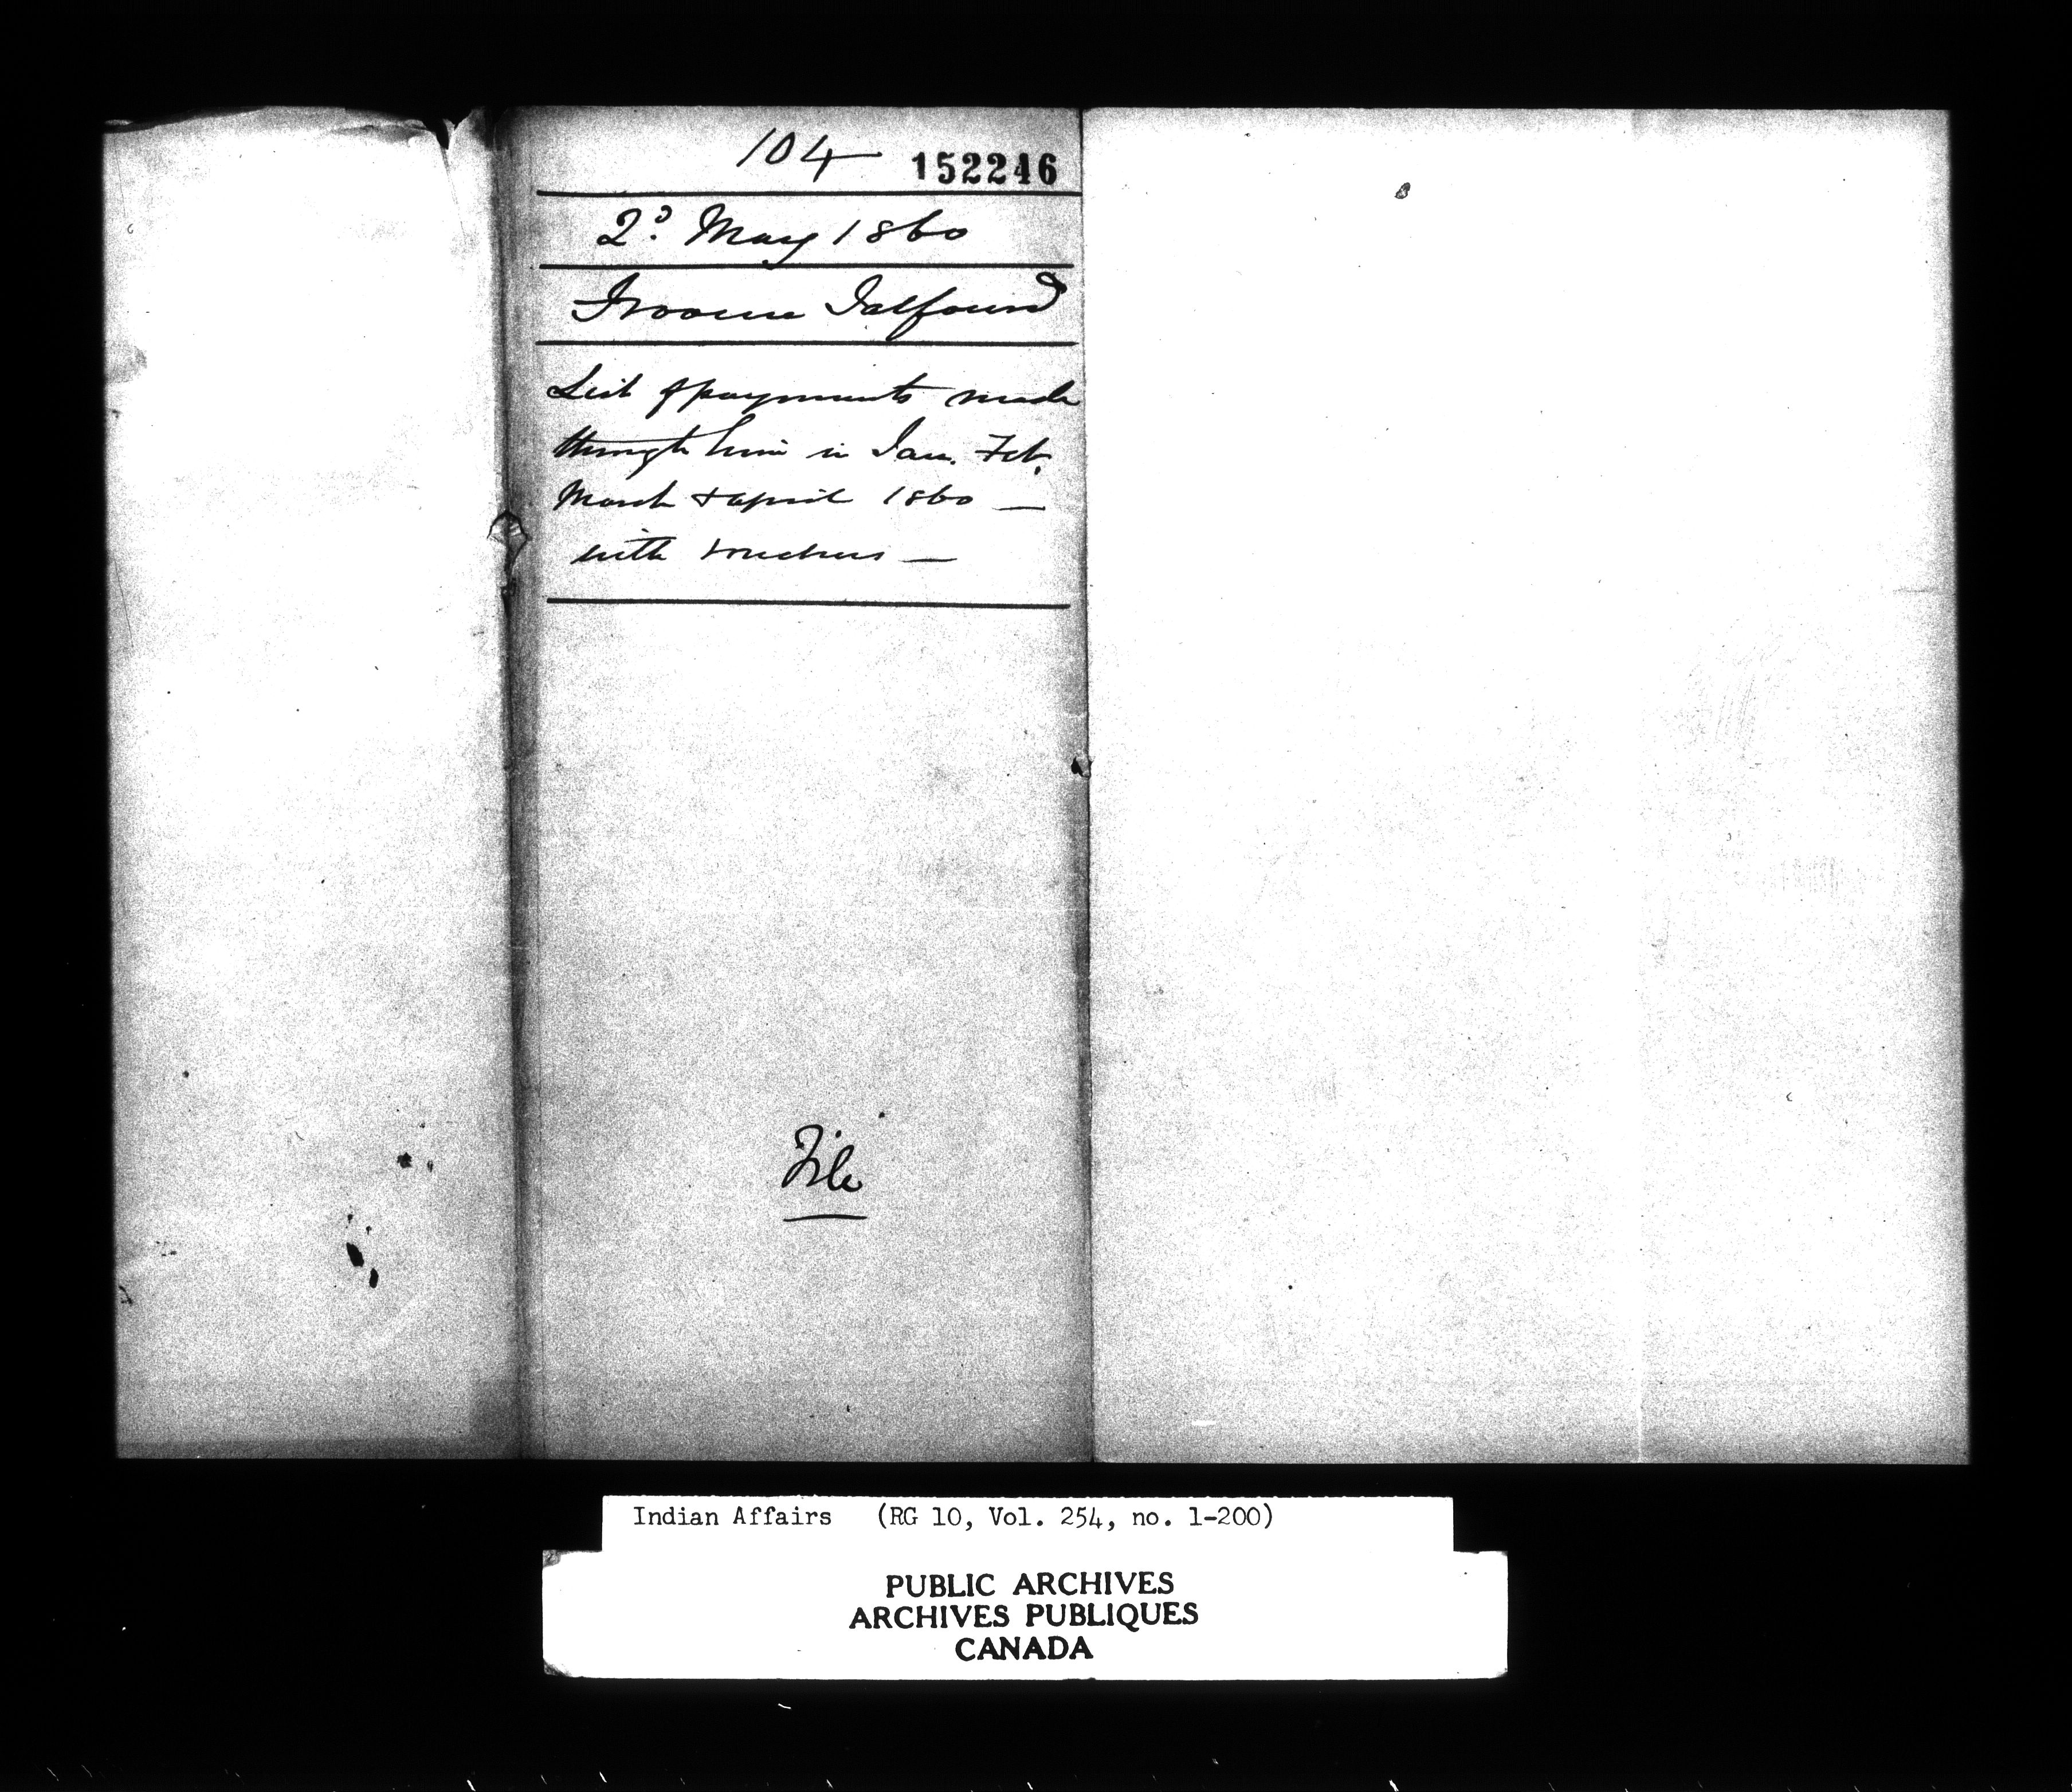 104 152246
2d May 1860
Froome Talfourd
List of payments made
through him in Jan. Feb.
March & April 1860 —
with vouchers —
File
Indian Affairs (RG 10, Vol. 254, no. 1-200)
PUBLIC ARCHIVES
ARCHIVES PUBLIQUES
CANADA